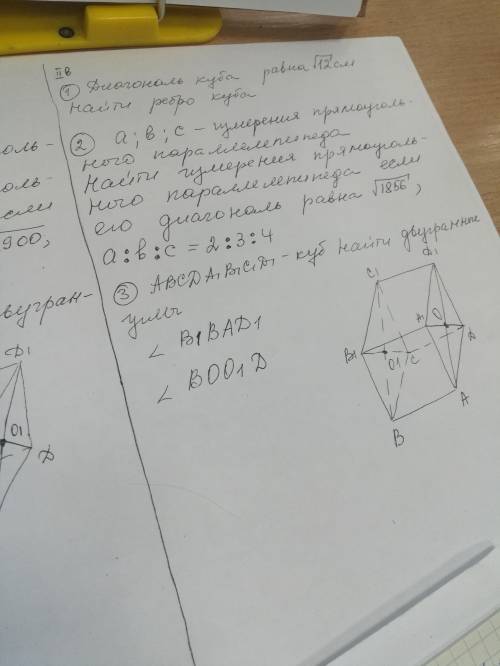 IIв
① Диагональ куба равна √12 см
найти ребро куба
② a; в; c – измерения прямоуголь-
ного параллелепипеда
Найти измерения прямоуголь-
ного параллелепипеда если
его диагональ равна √1856,
a:в:c = 2:3:4
③ ABCDA1B1C1D1 – куб найти двугранные
углы
∠ B1BAD1
∠ BOO1D
C1
D1
B1
O1
C
A1
O
D
A
B
оль-
оль-
если
900,
двугран-
D1
O1
D